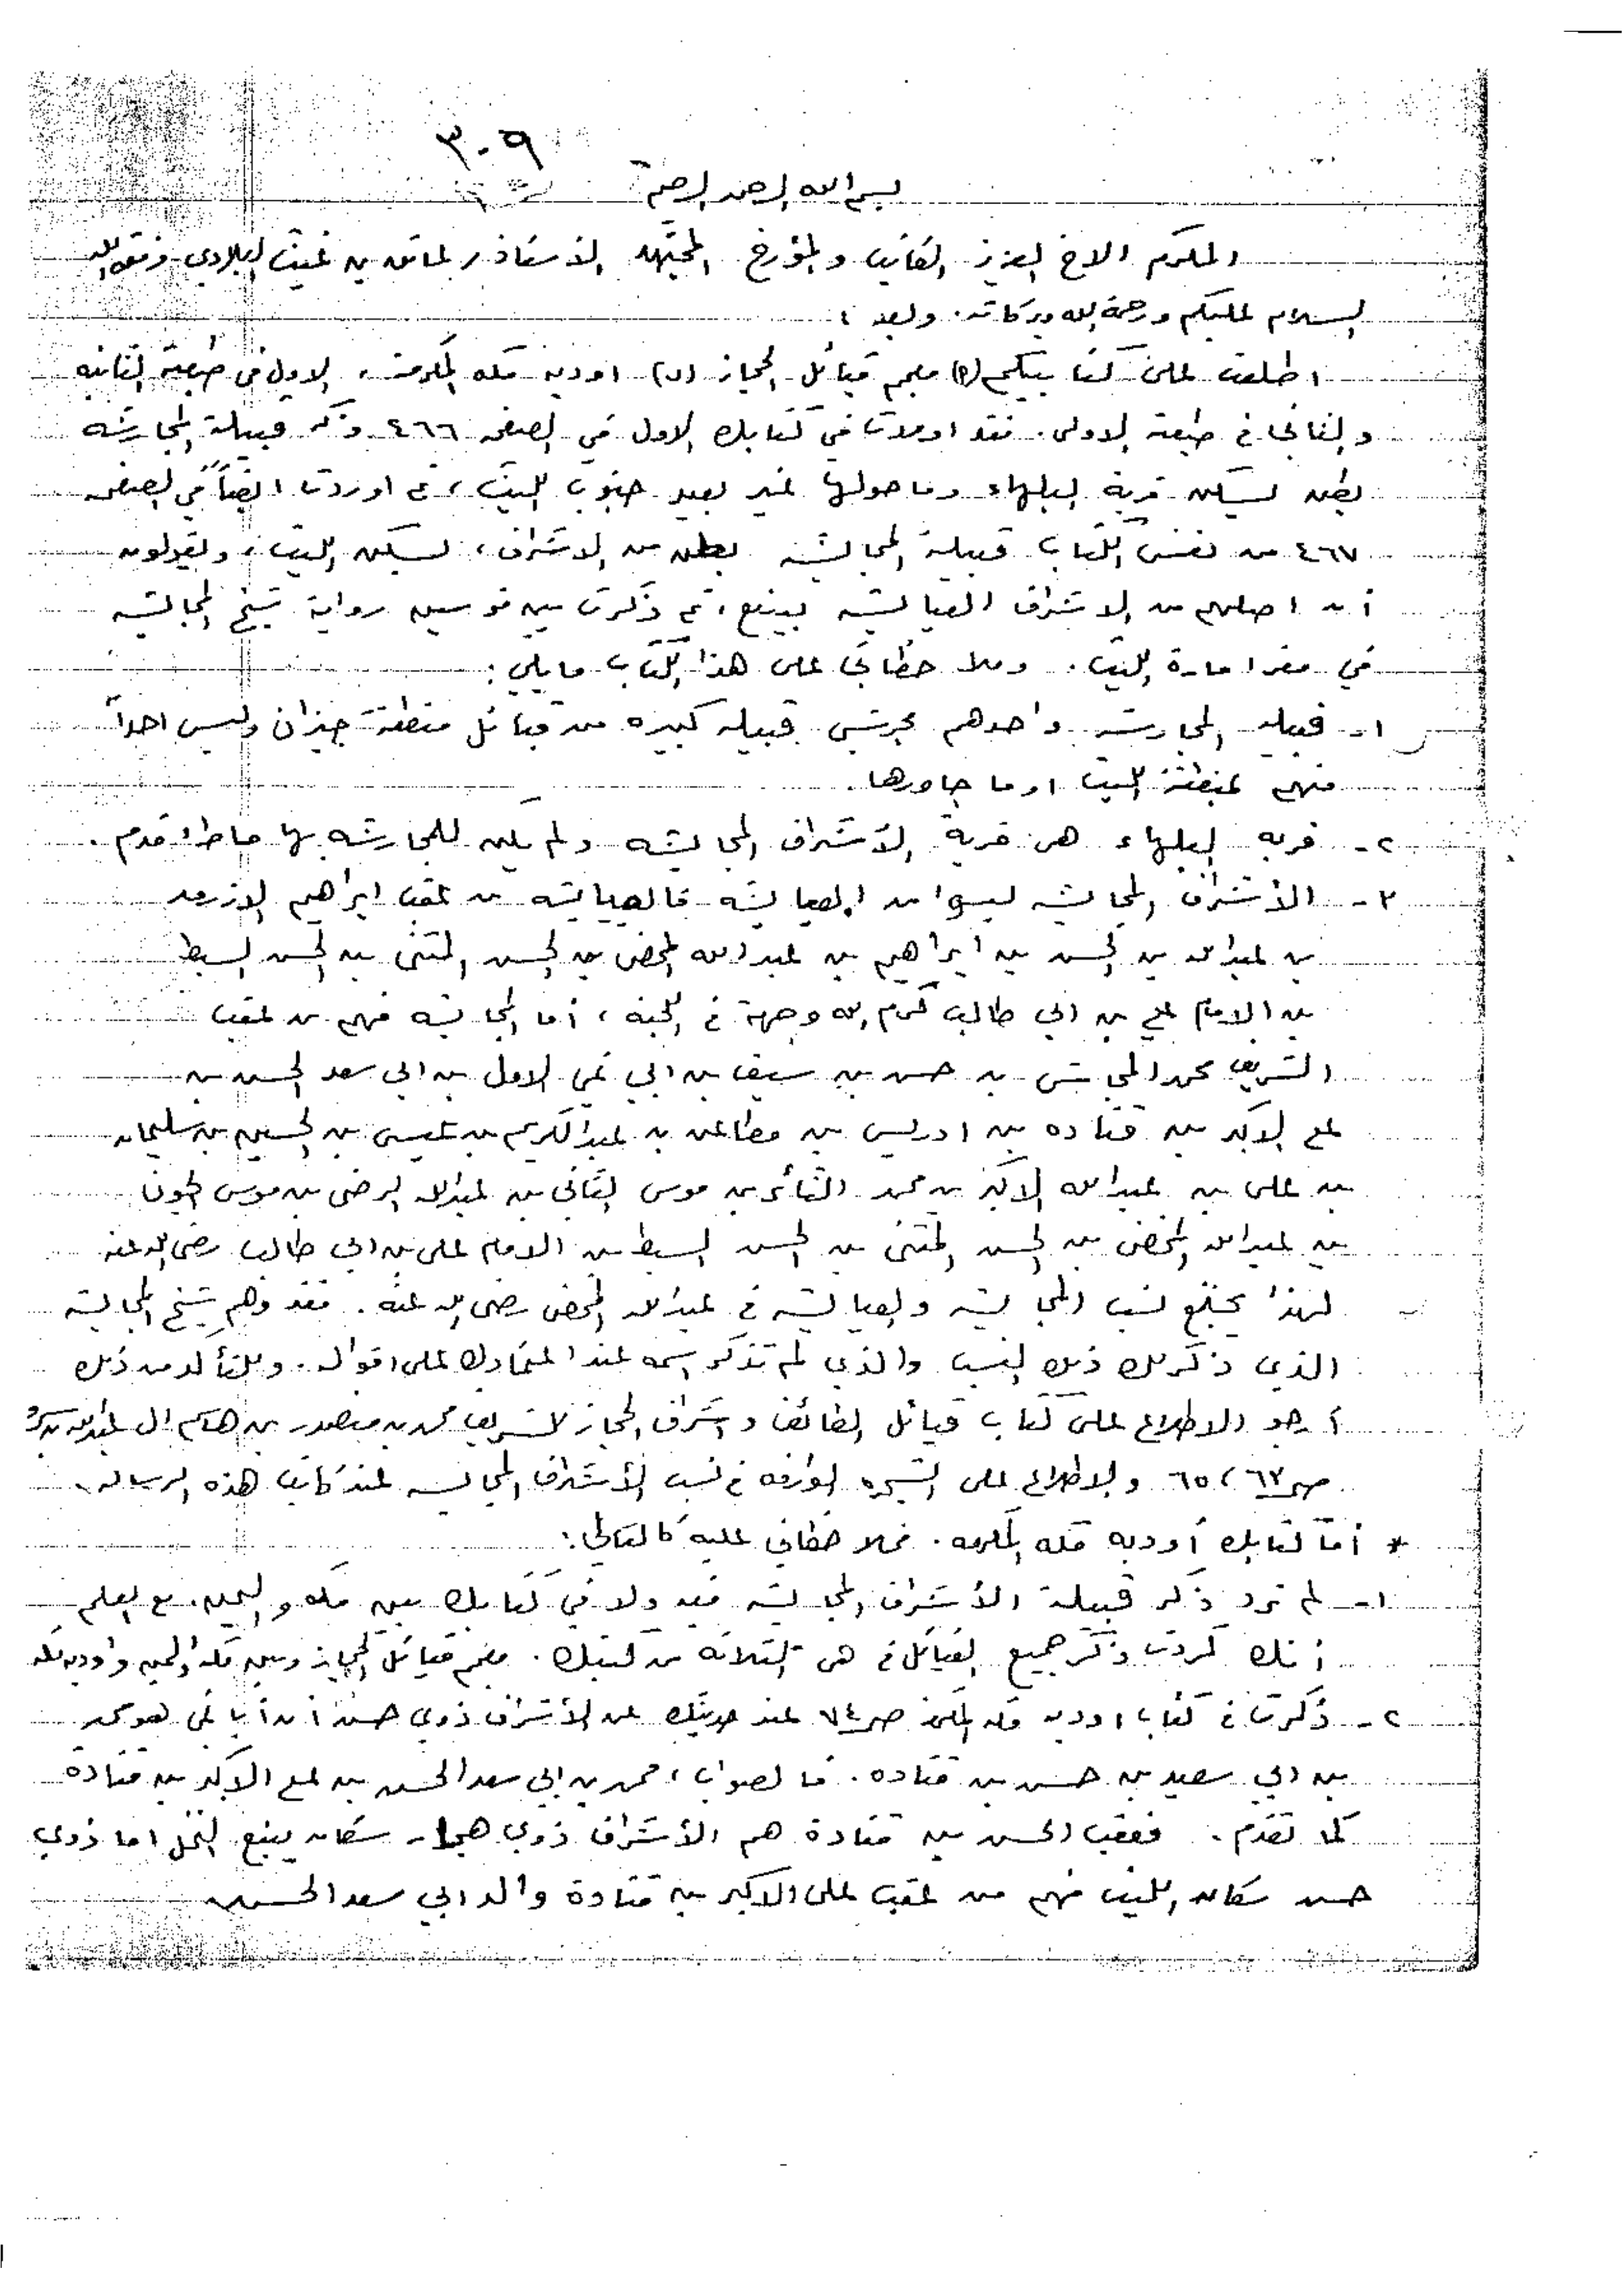 ٣٠٩
بسم الله الرحمن الرحيم
المكرم الاخ العزيز الكاتب والمؤرخ المجتهد الاستاذ / عاتق بن غيث البلادي وفقه الله
السلام عليكم ورحمة الله وبركاته. وبعد :
اطلعت على كتابيكم (P) معجم قبائل الحجاز (ں) اودية مكه المكرمة ، الاول في طبعته الثانيه
والثاني في طبعته الاولى. فقد اوردت في كتابك الاول في الصفحه ٤٦٦ ذكر قبيلة المجارشه
بطن يسكن قرية البلهاء وما حولها غير بعيد جنوب الليث ، ثم اوردت ايضاً في الصفحه
٤٦٧ من نفس الكتاب قبيلة المجايشه بطن من الاشراف ، يسكن الليث ، ويقولون
أن اصلهم من الاشراف العيايشه بينبع ، ثم ذكرت بين قوسين رواية شيخ المجايشه
في مقر امارة الليث . وملاحظاتي على هذا الكتاب مايلي :
١- قبيلة المجارشه واحدهم مجرشي قبيله كبيره من قبائل منطقة جيزان وليس احداً
منهم بمنطقة الليث او ما جاورها.
٢- قريه البلهاء هي قرية الأشراف المجايشه ولم يكن للمجارشه بها ماطرة قدم .
٣- الأشراف المجايشه ليسوا من العيايشه فالعيايشه من عقب ابراهيم الازرمد
بن عبدالله بن الحسن بن ابراهيم بن عبدالله المحض بن الحسن المثنى بن الحسن السبط
بن الامام علي بن ابي طالب كرم الله وجهة في الجنه ، أما المجايشه فهم من عقب
الشريف محمد المجايشي بن حسن بن سيف بن ابي نمي الاول بن ابي سعد الحسن بن
علي الاكبر بن قتاده بن ادريس بن مطاعن بن عبدالكريم بن عيسى بن الحسين بن سليمان
بن علي بن عبدالله الاكبر بن محمد الثائر بن موسى الثاني بن عبدالله الرضى بن موسى الجون
بن عبدالله المحض بن الحسن المثنى بن الحسن السبط بن الامام علي بن ابي طالب رضي الله عنه
لهذا يجتمع نسب المجايشه والعيايشه في عبدالله المحض رضي الله عنه . فقد وهم شيخ المجايشه
الذي ذكر لك ذلك النسب والذي لم تذكر اسمه عند اعتمادك على اقواله . وللتأكد من ذلك
أرجو الاطلاع على كتاب قبائل الطائف واشراف الحجاز للشريف محمد بن منصور بن هاشم ال عبدالله بن سرور
صـ ٦٧ ، ٦٥ والاطلاع على الشجره الوافه في نسب الأشراف المجايشه عند كاتب هذه الرساله .
* أما كتابك أودية مكه المكرمه . فملاحظاتي عليه كالتالي :
١- لم ترد ذكر قبيلة الأشراف المجايشه فيه ولا في كتابك بين مكه واليمن . مع العلم
أنك كررت ذكر جميع القبائل في هي الثلاثه من كتبك . معجم قبائل الحجاز وبين مكه واليمن واودية مكه
٢- ذكرت في كتاب اودية مكه المكرمة صـ ٧٤ عند حديثك عن الأشراف ذوي حسن أن أبا نمي هو محمد
بن ابي سعيد بن حسن بن قتاده . فالصواب ، محمد بن ابي سعد الحسن بن علي الاكبر بن قتادة
كما تقدم . فعقب الحسن بن قتادة هم الأشراف ذوي هجار سكان ينبع النخل اما ذوي
حسن سكان الليث فهم من عقب علي الاكبر بن قتادة والد ابي سعد الحسن